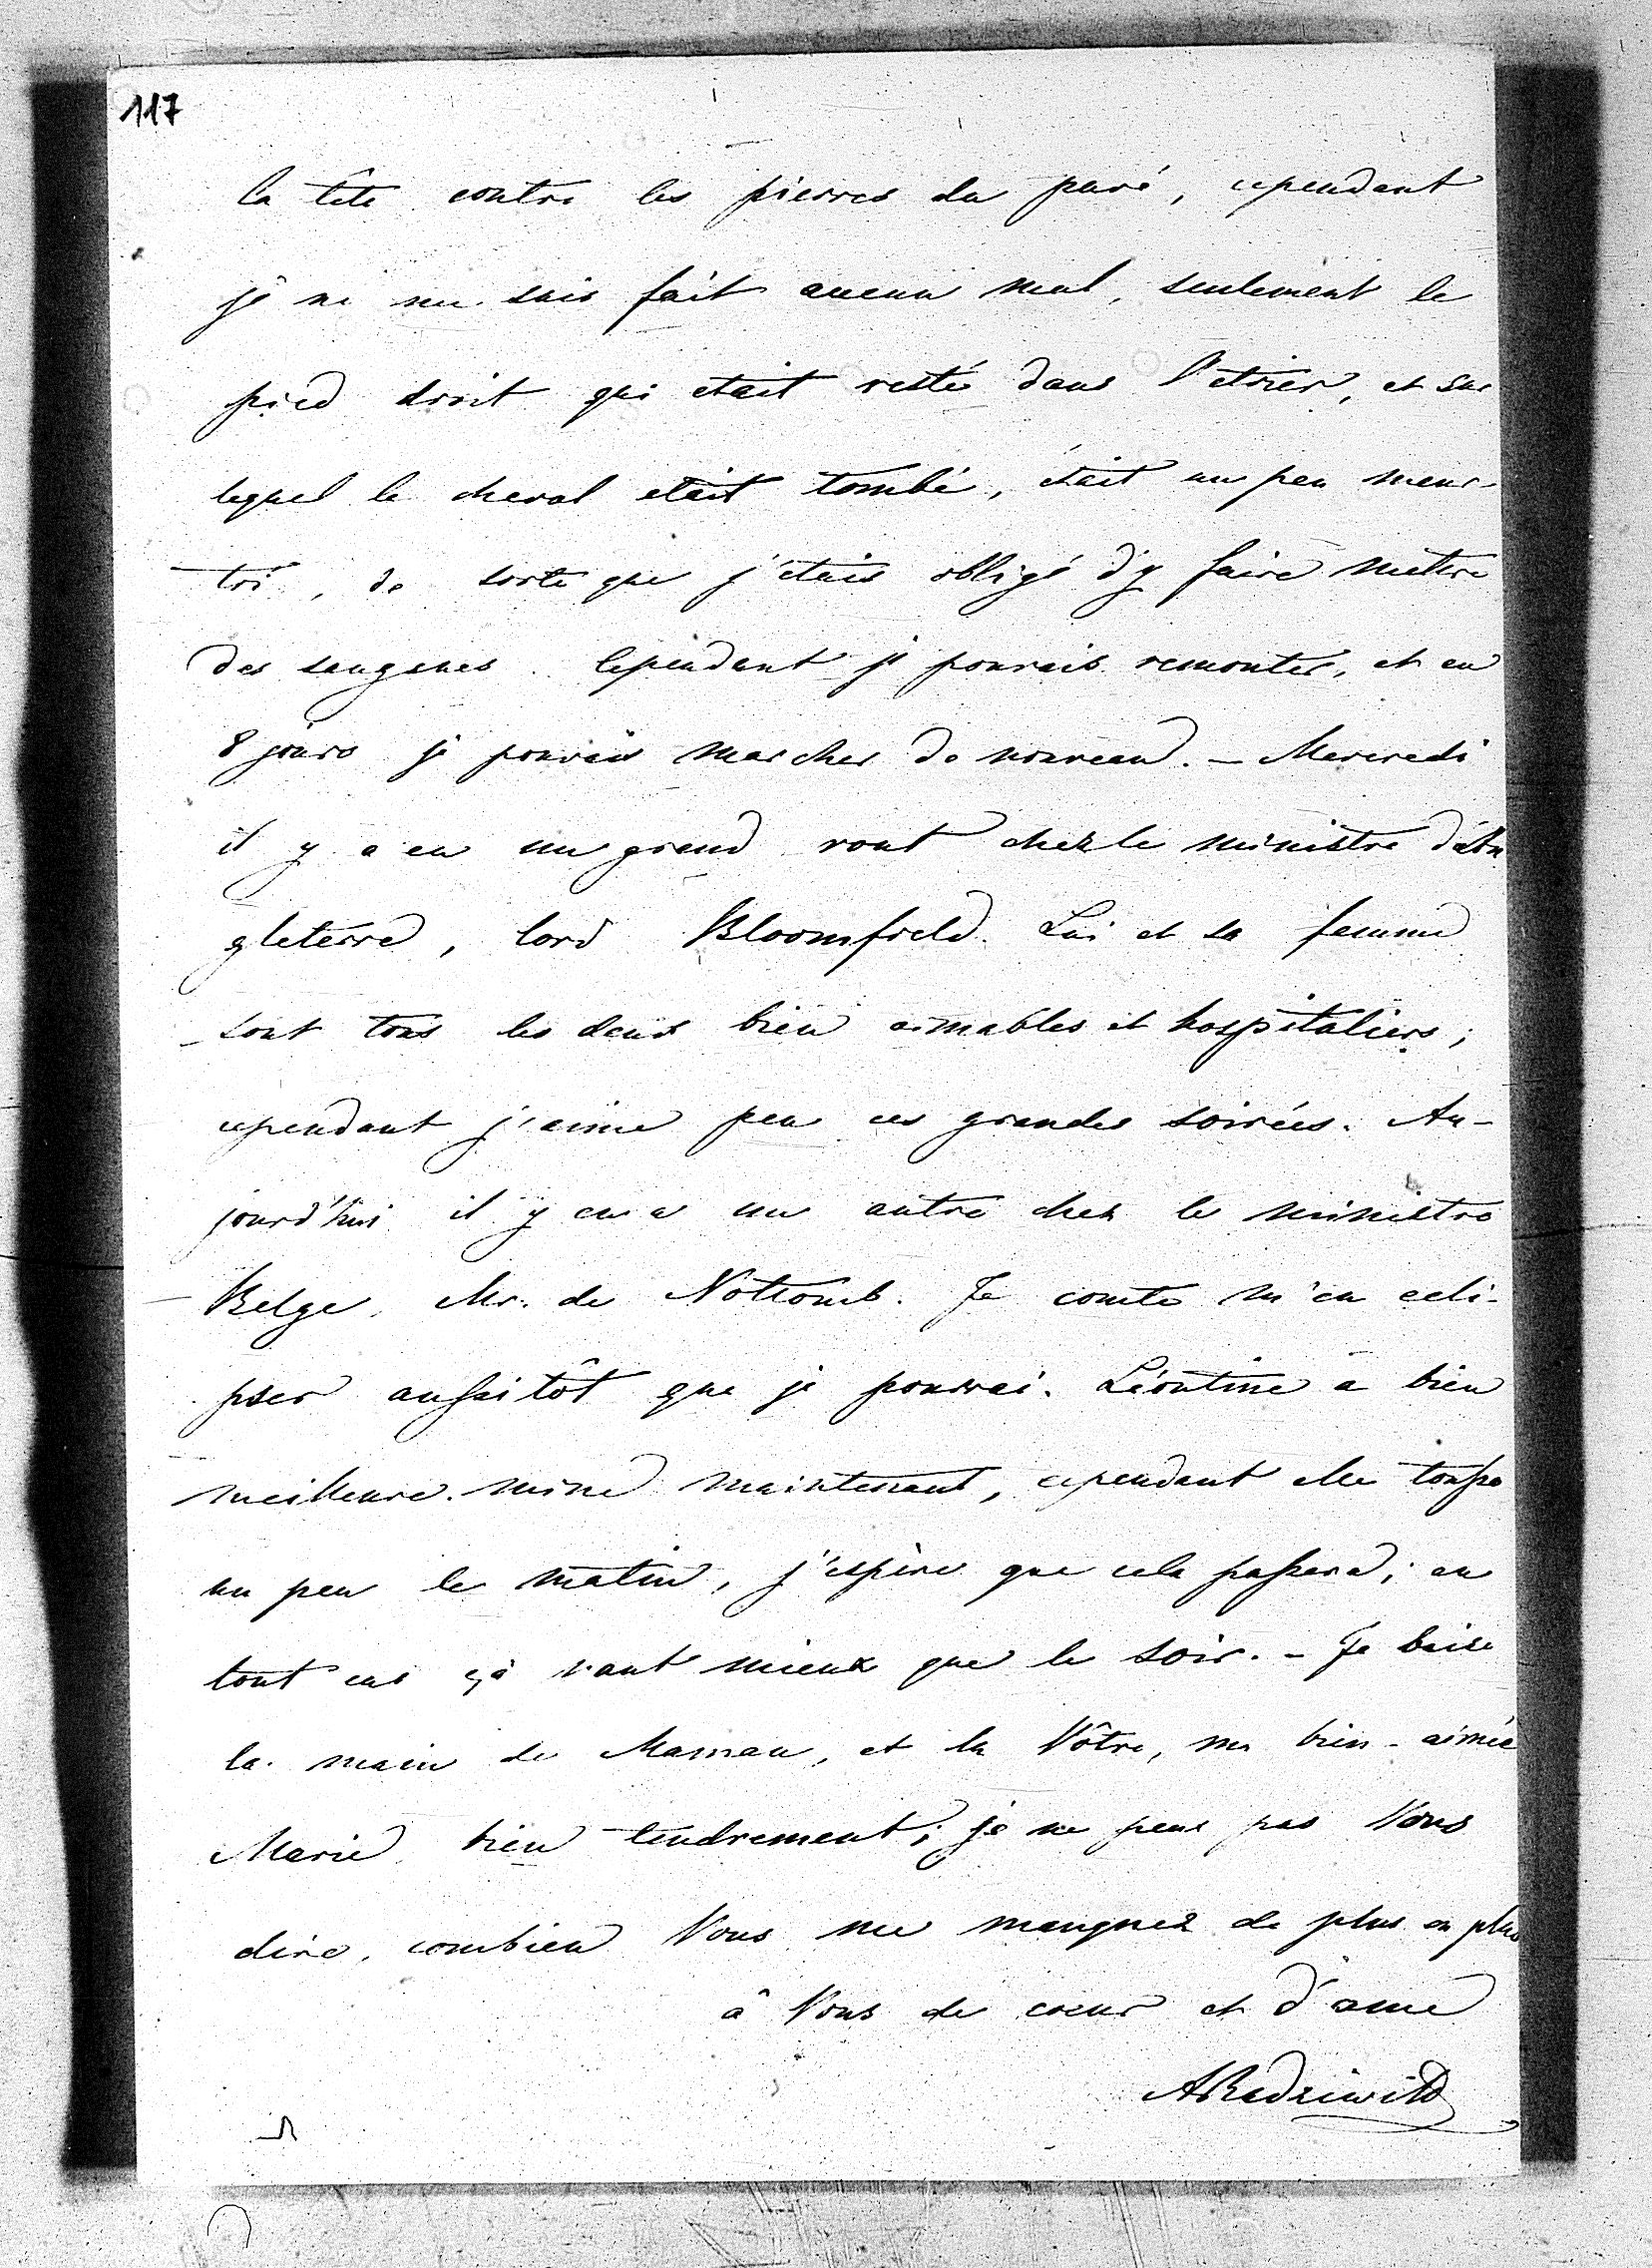 117
la tête contre les pierres du pavé, cependant
je ne me suis fait aucun mal, seulement le
pied droit qui etait resté dans l'etrier, et sur
lequel le cheval etait tombé, était un peu meur-
tri, de sorte que j'etais obligé d'y faire mettre
des sangsues. Cependant je pouvais remonter, et en
8 jours je pouvais marcher de nouveau. – Mercredi
il y a eu un grand rout chez le ministre d'An
gleterre, lord Bloomfield. Lui et sa femme
sont tous les deux bien aimables et hospitaliers;
cependant j'aime peu ces grandes soirées. Au-
jourd'hui il y en a un autre chez le ministre
Belge, Mr. de Nothomb. Je comte m'en ecli-
pser aussitôt que je pourrai. Léontine a bien
meilleure mine maintenant, cependant elle tousse
un peu le matin, j'espère que cela passera; en
tout cas çà vaut mieux que le soir. – Je baise
la main de Maman, et la Vôtre, ma bien-aimée
Marie, bien tendrement; je ne peux pas Vous
dire, combien Vous me manquez de plus en plus
à Vous de coeur et d'ame
ARadziwill